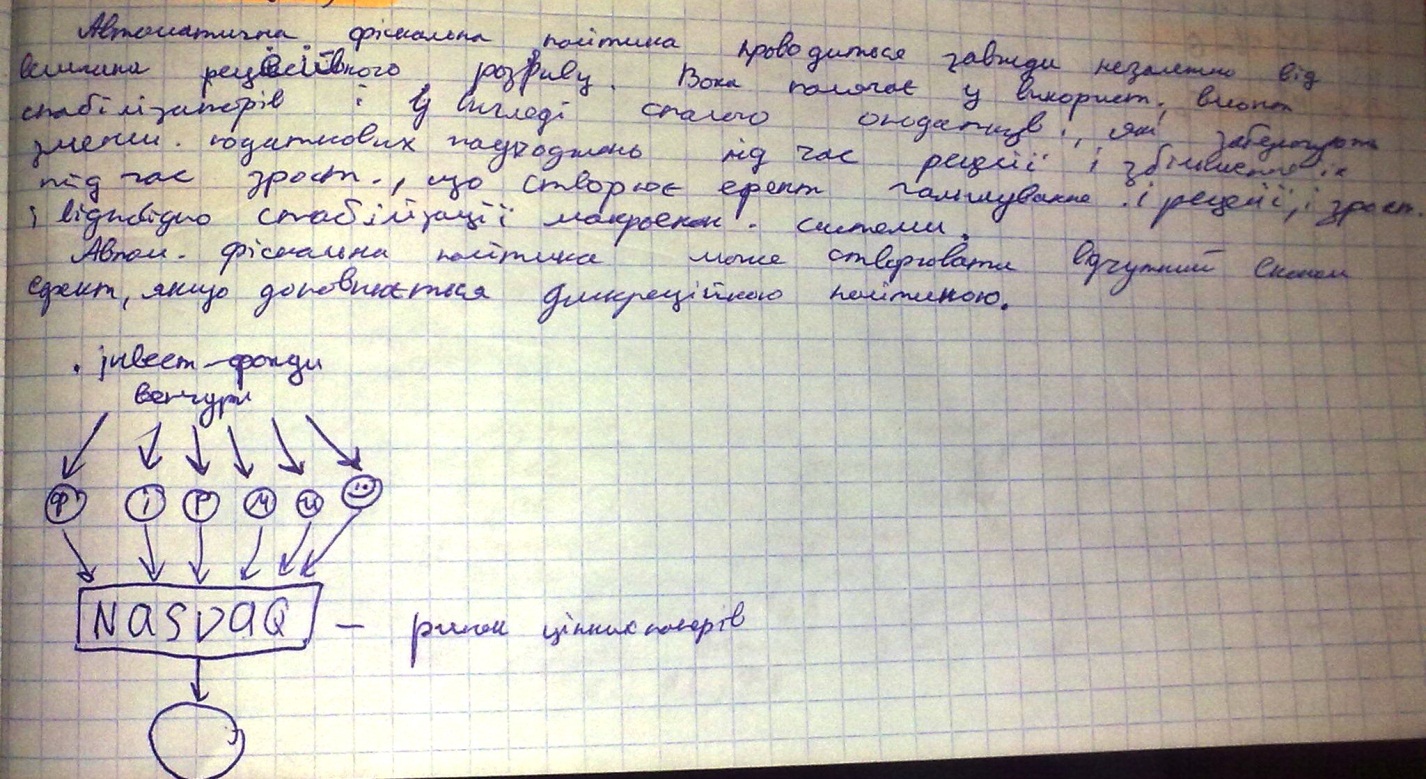 Автоматична фіскальна політика проводиться завжди незалежно від
величина рецесійного розриву. Вона полягає у використ.
стабілізаторів і у вигляді сталого оподаткув., які забезпечують
зменш. податкових надходжень під час рецесії і збільшення їх
під час зрост., що створює ефект гальмування і рецесії, і зрост.
і відповідно стабілізації макроекон. системи.
Автом. фіскальна політика може створювати відчутний економ
ефект, якщо доповнюється дискреційною політикою.
. інвест-фонди
венчурн
Ф І Р М И
NASDAQ — ринок цінних паперів